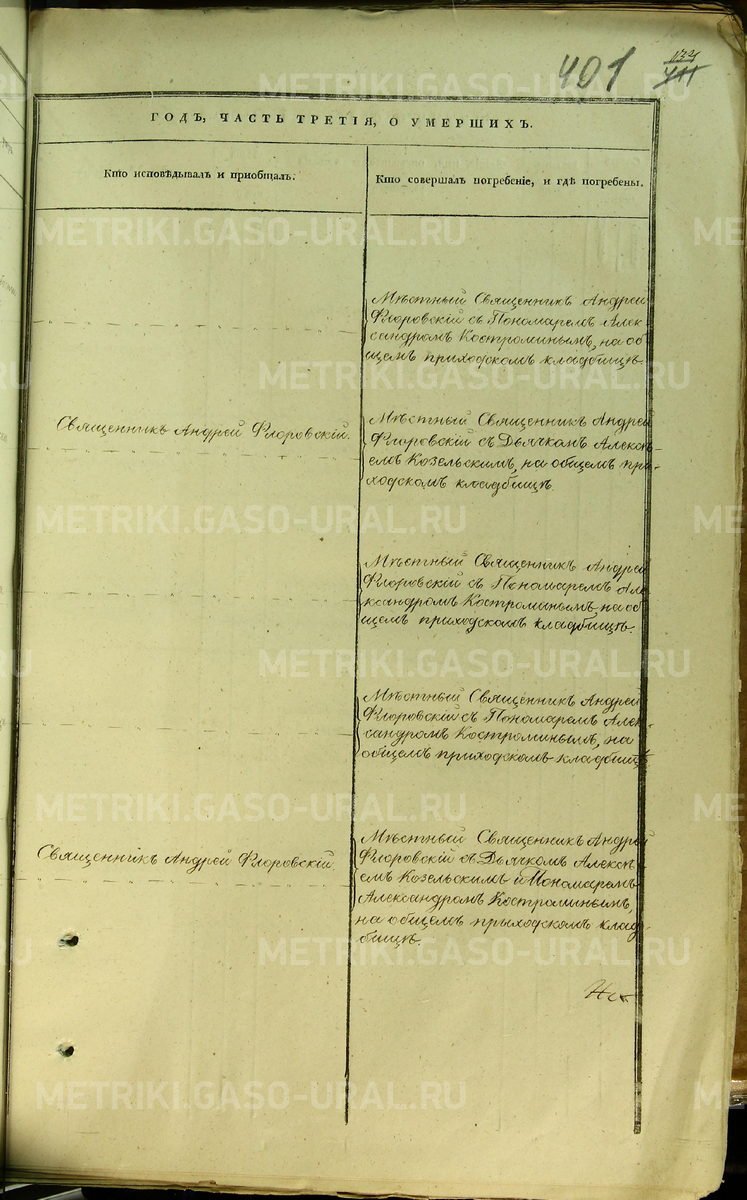 401
ГОДЪ, ЧАСТЬ ТРЕТІЯ, О УМЕРШИХЪ.
Кто исповѣдывалъ и пріобщалъ.
Кто совершалъ погребеніе, и гдѣ погребены.
Мѣстный Священникъ Андрей
Флоровскій съ Пономаремъ Алек-
сандромъ Костроминымъ, на об
щемъ приходскомъ кладбищѣ.
Священникъ Андрей Флоровскій.
Мѣстный Священникъ Андрей
Флоровскій съ Дьячкомъ Алексѣ-
емъ Козельскимъ, на общемъ при-
ходскомъ кладбищѣ.
Мѣстный Священникъ Андрей
Флоровскій съ Пономаремъ Але
ксандромъ Костроминымъ на об
щемъ приходскомъ кладбищѣ.
Мѣстный Священникъ Андрей
Флоровскій съ Пономаремъ Алек-
сандромъ Костроминымъ, на
общемъ приходскомъ кладбищѣ
Священникъ Андрей Флоровскій.
Мѣстный Священникъ Андрей
Флоровскій съ Дьячкомъ Алексѣ-
емъ Козельскимъ и Пономаремъ
Александромъ Костроминымъ,
на общемъ приходскомъ клад-
бищѣ.
METRIKI.GASO-URAL.RU